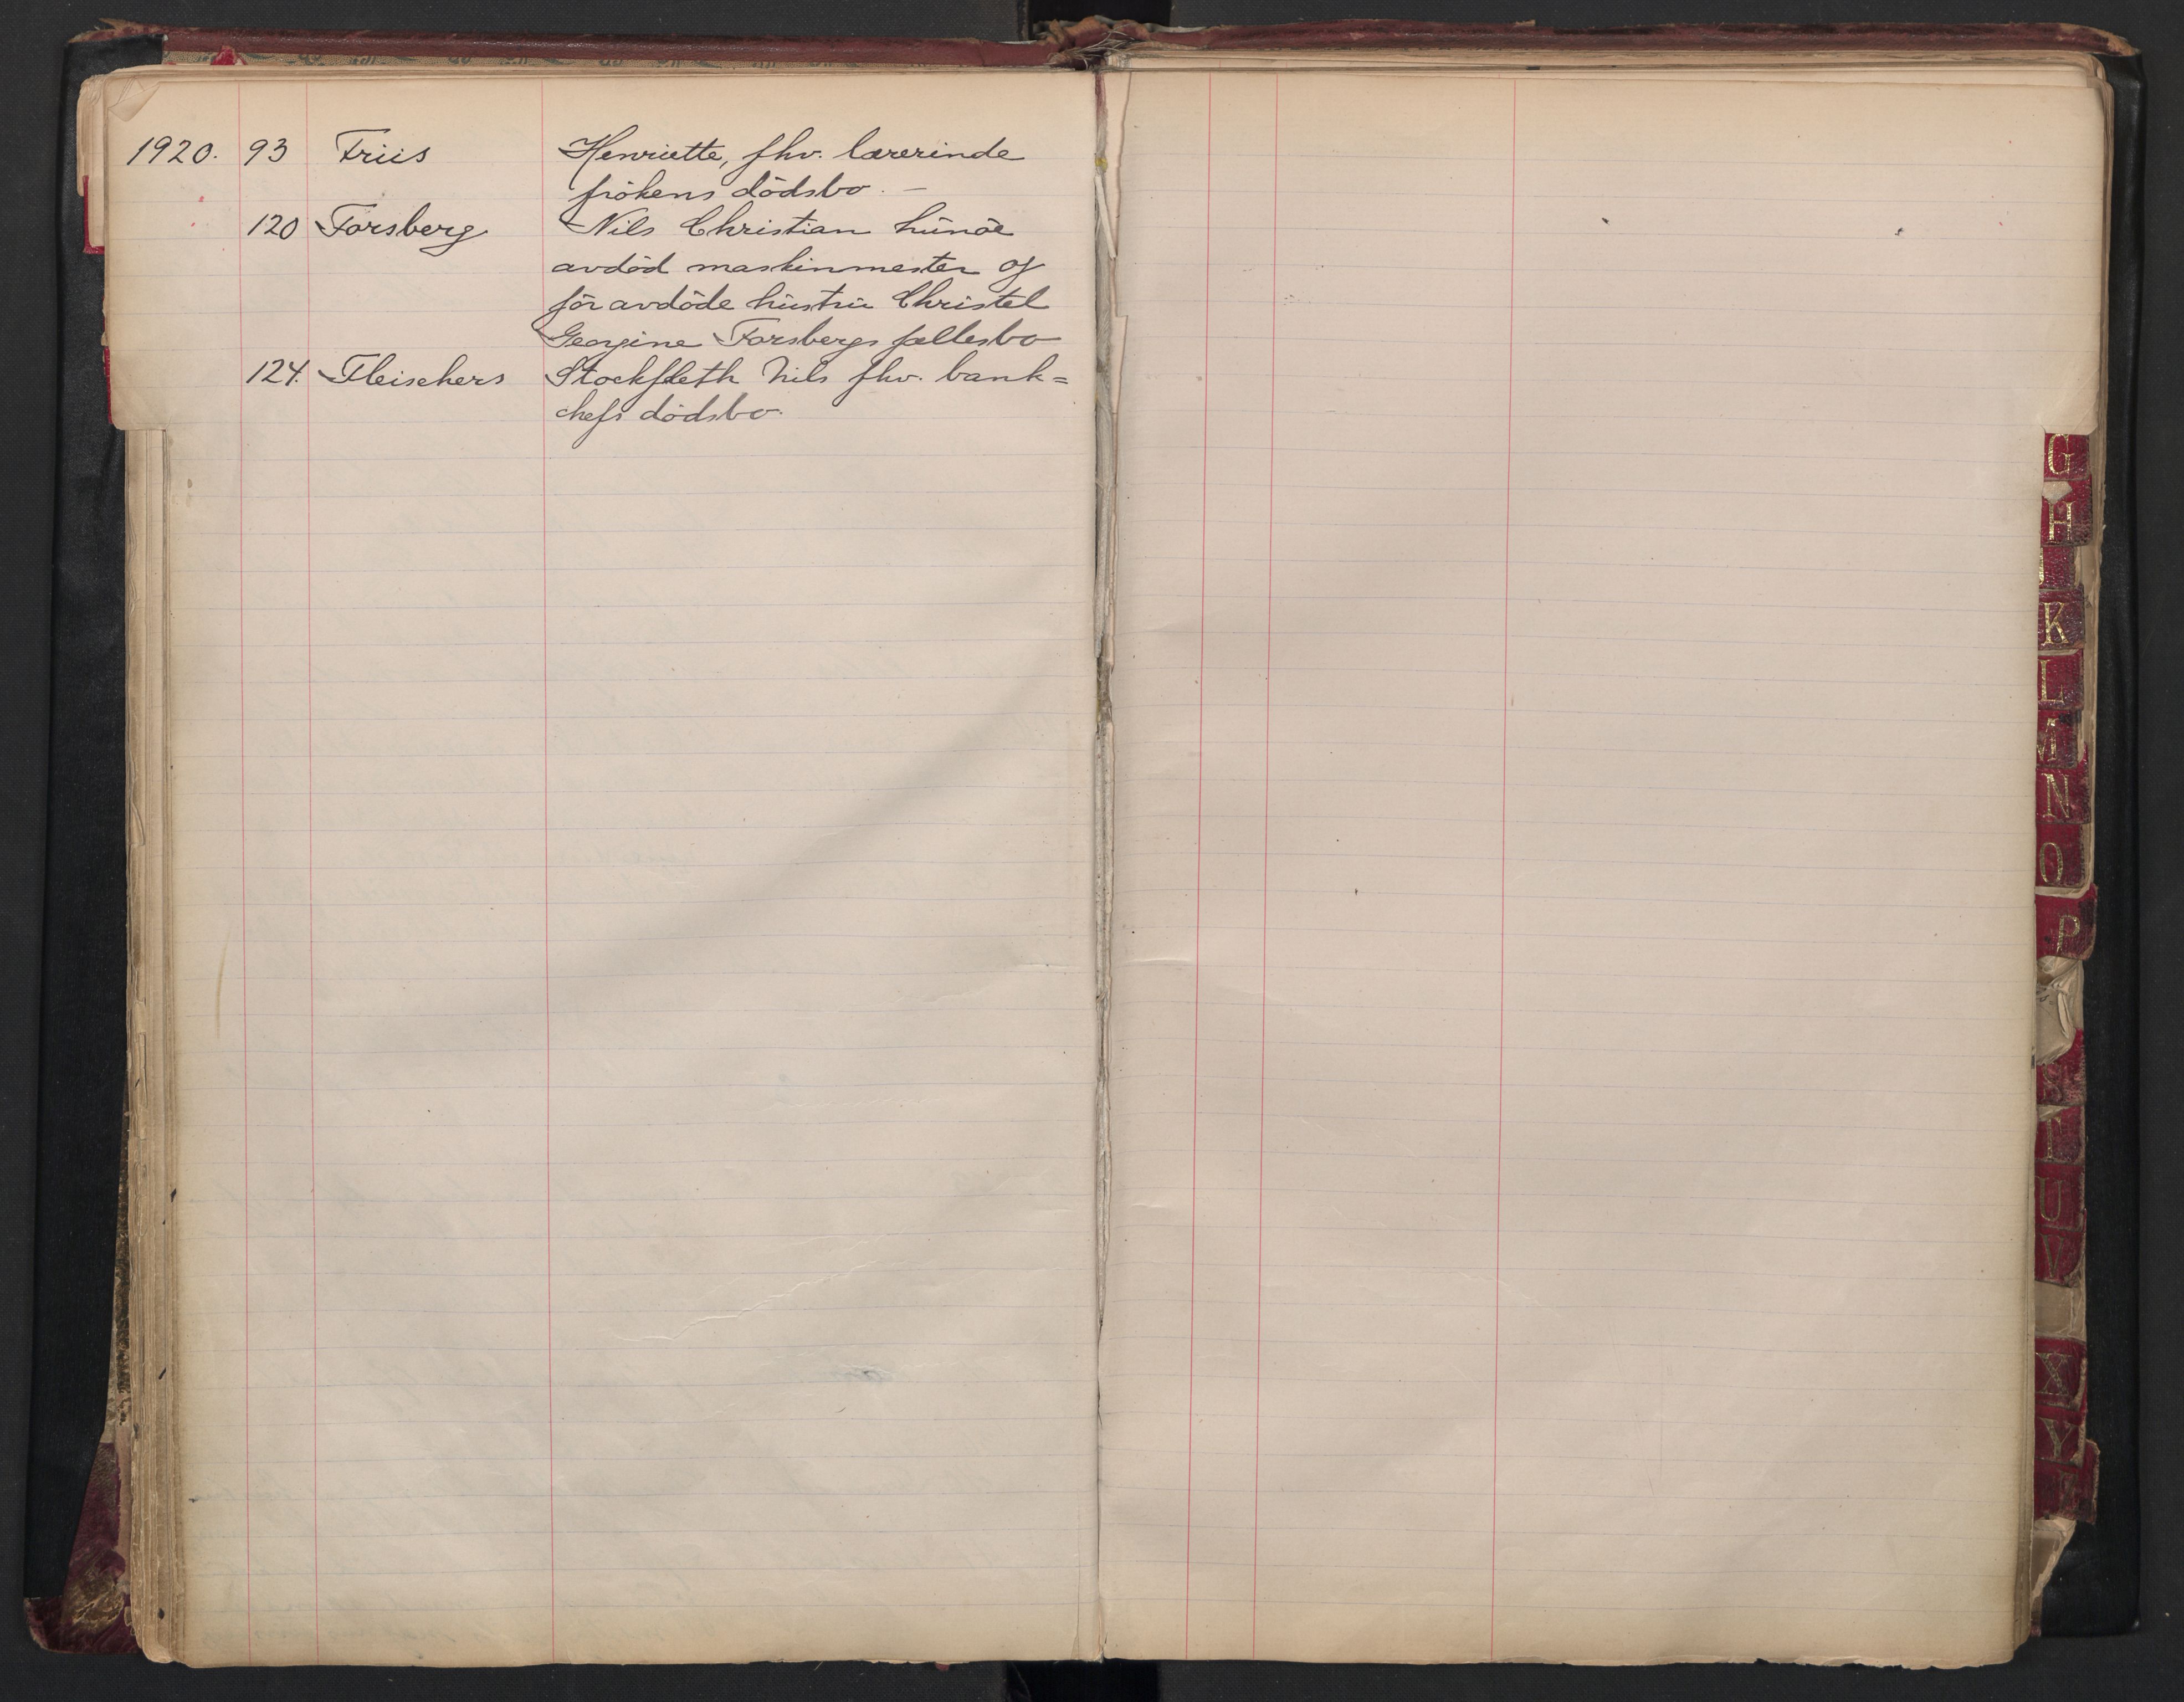 1920. 93 Friis Henriette, fhv. lærerinde
frökens dödsbo. —
120 Forsberg Nils Christian
avdöd maskinmester og
för avdöde hustru Christel
Georgine Forsbergs fællesbo
124. Fleischers Stockfleth Nils fhv. bank=
chefs dödsbo.
G
H
K
L
M
N
O
P
S
T
U
V
X
Y